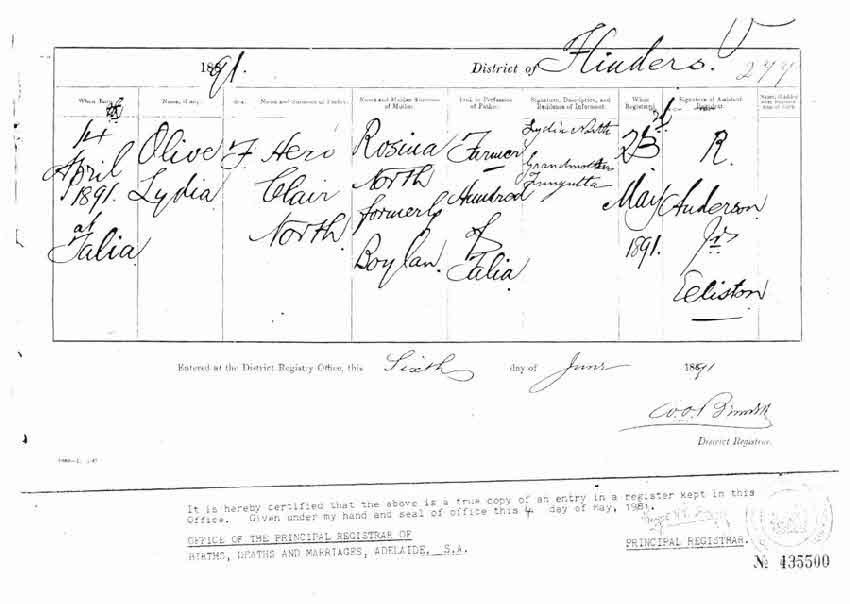 1891.
District of Flinders.
277
When Born
Name, if any.
Sex.
Name and Surname of Father.
Name and Maiden Surname of Mother.
Rank or Profession of Father.
Signature, Description, and Residence of Informant.
When Registered.
Signature of Assistant
14th
April
1891.
at
Talia
Olive
Lydia
F
Hero
Clair
North
Rosina
North
formerly
Boylan.
Farmer
Hundred
of
Talia
Lydia North
Grandmother
23rd
May
1891.
R.
Anderson
Jr
Elliston
Entered at the District Registry Office, this Sixth day of June 1891
District Registrar.
It is hereby certified that the above is a true copy of an entry in a register kept in this
Office. Given under my hand and seal of office this 4 day of May, 1981.
OFFICE OF THE PRINCIPAL REGISTRAR OF
BIRTHS, DEATHS AND MARRIAGES, ADELAIDE, S.A.
PRINCIPAL REGISTRAR.
№ 435500